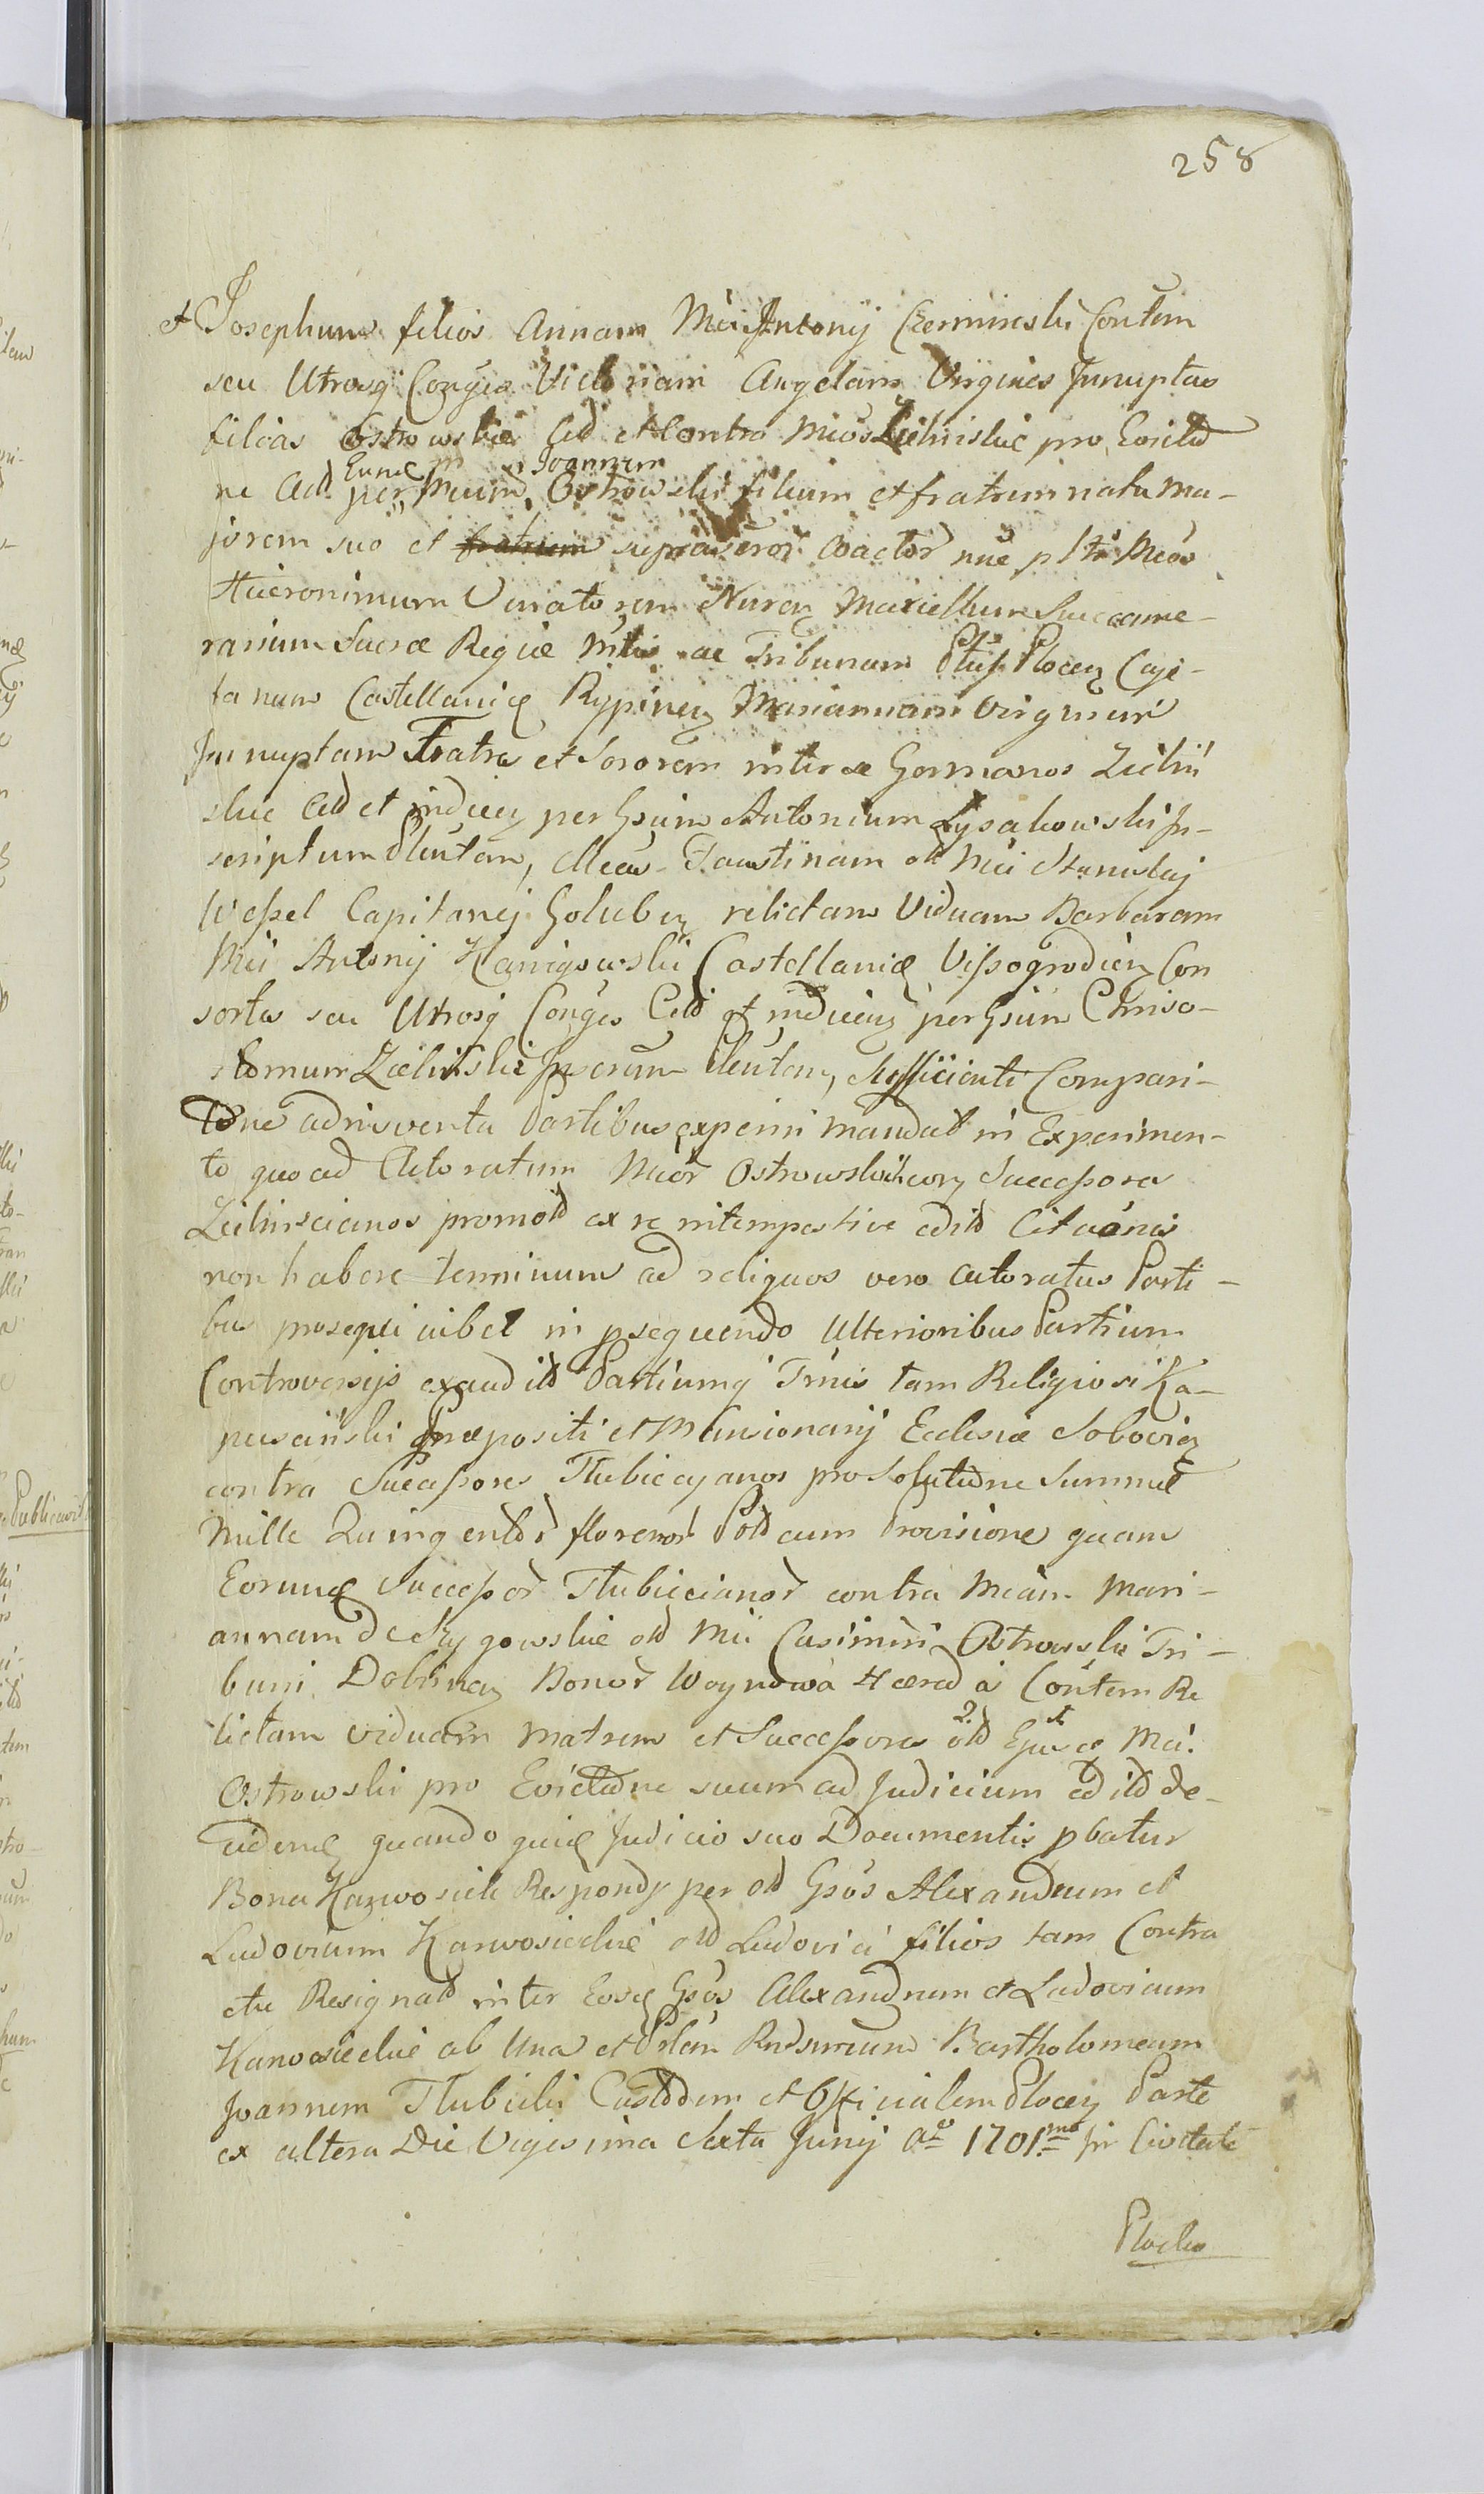 258
et Josephum filios Annam Mci Antonij Czerminski Contem
seu Utrosq Conges Victoriam Angelam Virgines Innuptas
filias Ostrowskie Citd et Contra Mcos Zielinskie pro Evictio
ne Actt per Eund Mcum Joannem Ostrowski filium et fratrem natu ma-
jorem suo et fratrum supraseror Coactor nue pltr Mcos
Hieronimum Venatorem Nuren Maxiellum Succame-
rarium Sacræ Regiæ Mttis ac Tribunum Pttus Plocen Caje-
tanum Castellanicę Rypinen Mariannam Virginem
Innuptam Fratres et Sororem inter se Germanos Zielin
skie Citd et inducen per Gsum Antonium Łysakowski In-
scriptum Pleuten, Mcas Faustinam ott Mci Stanislaj
Wessel Capitanej Golubien relictam Viduam Barbaram
Mci Antonij Kanigowski Castellanicæ Vissogrodien Con
sortes seu Utrosq Conges Citd et inducien per Gsum Chriso-
stomum Zielinski Inserum Pleuten, Sufficienti Compari-
tione adinventa Partibus experiri mandat in Experimen-
to quo ad Actoratum Mcor Ostrowskich corn Successores
Zielinscianos promott ex re intempestive editd Citaonis
non habere terminum ad reliquos vero Actoratus Parti-
bus prosequi iubet in psequendo Ulterioribus Partium
Controversijs exauditd Partiumq Trnis tam Religiosi Ka-
pusciński Præpositi et Mansionarij Ecclesiæ Sobocien
contra Successores Tłubiccyanos pro Solutione Summæ
Mille Quingentor florenor Pott cum Provisione quam
Eorund Successor Tłubiccianor contra Mcam Mari-
annam de Rygowskie ott Mci Casimiri Ostrowski Tri-
buni Dobrinen Bonor Woynowa Hæred a Contem Re
lictam viduam Matrem et Successores ott Ejusd Mci.
Ostrowski pro Evictione suum ad Judicium editd de-
cidend quando quid Judicio suo Documentis pbatur
Bona Karwosieki Respondy per ott Gsos Alexandrum et
Ludovicum Karwosieckie ott Ludovici filios tam Contra
ctu Resignatt inter Eosd Gsos Alexandrum et Ludovicum
Karwosieckie ab Una et Prlem Rndsumum Bartholomeum
Joannem Tłubicki Custodem et Officialem Plocen Parte
ex altera Die Vigesima Sexta Junij Ao 1701mo in Civitate
Plocko